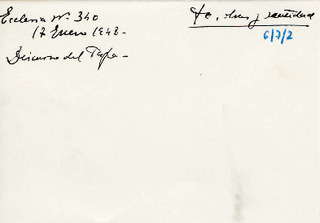 Ecclesia Nº. 340
17 Enero 1948.-
Discurso del Papa -
Fe, obras y santidad
6/7/2